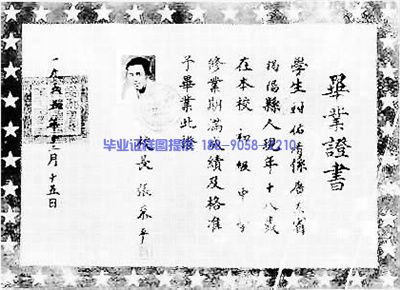 畢業證書
學生佑係廣東省
揭陽縣人現年十八歲
在本校初級中學
修業期滿成績及格准
予畢業此證
校長張平
一九五年月十五日
毕业证样图提供